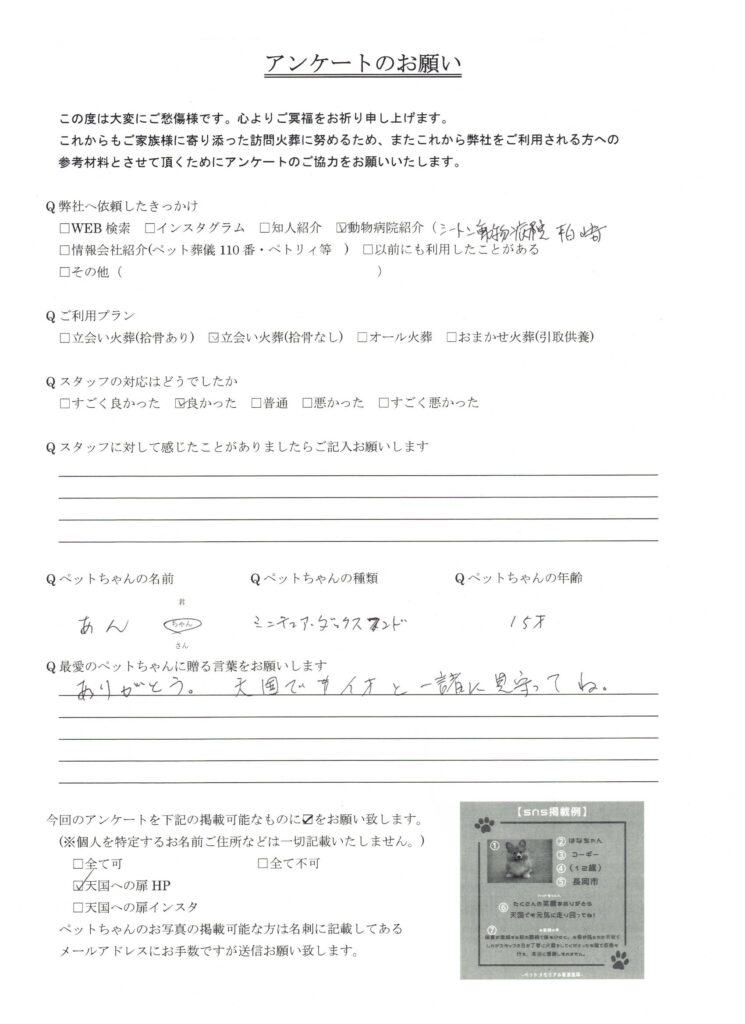 アンケートのお願い
この度は大変にご愁傷様です。心よりご冥福をお祈り申し上げます。
これからもご家族様に寄り添った訪問火葬に努めるため、またこれから弊社をご利用される方への
参考材料とさせて頂くためにアンケートのご協力をお願いいたします。
Q 弊社へ依頼したきっかけ
□WEB 検索 □インスタグラム □知人紹介 ☑動物病院紹介（シートン動物病院 柏崎
□情報会社紹介(ペット葬儀 110 番・ペトリィ等 ) □以前にも利用したことがある
□その他（ ）
Q ご利用プラン
□立会い火葬(拾骨あり) ☑立会い火葬(拾骨なし) □オール火葬 □おまかせ火葬(引取供養)
Q スタッフの対応はどうでしたか
□すごく良かった ☑良かった □普通 □悪かった □すごく悪かった
Q スタッフに対して感じたことがありましたらご記入お願いします
Q ペットちゃんの名前 Q ペットちゃんの種類 Q ペットちゃんの年齢
君
あん ちゃん ミニチュア・ダックスフンド 15才
さん
Q 最愛のペットちゃんに贈る言葉をお願いします
ありがとう。 天国でサイオと一諸に見守ってね。
今回のアンケートを下記の掲載可能なものに☑をお願い致します。
(※個人を特定するお名前ご住所などは一切記載いたしません。)
□全て可 □全て不可
☑天国への扉 HP
□天国への扉インスタ
ペットちゃんのお写真の掲載可能な方は名刺に記載してある
メールアドレスにお手数ですが送信お願い致します。
【sns掲載例】
① ② はなちゃん
③ コーギー
④ （12歳）
⑤ 長岡市
⑥ たくさんの笑顔をありがとう
天国でも元気に走り回ってね！
⑦